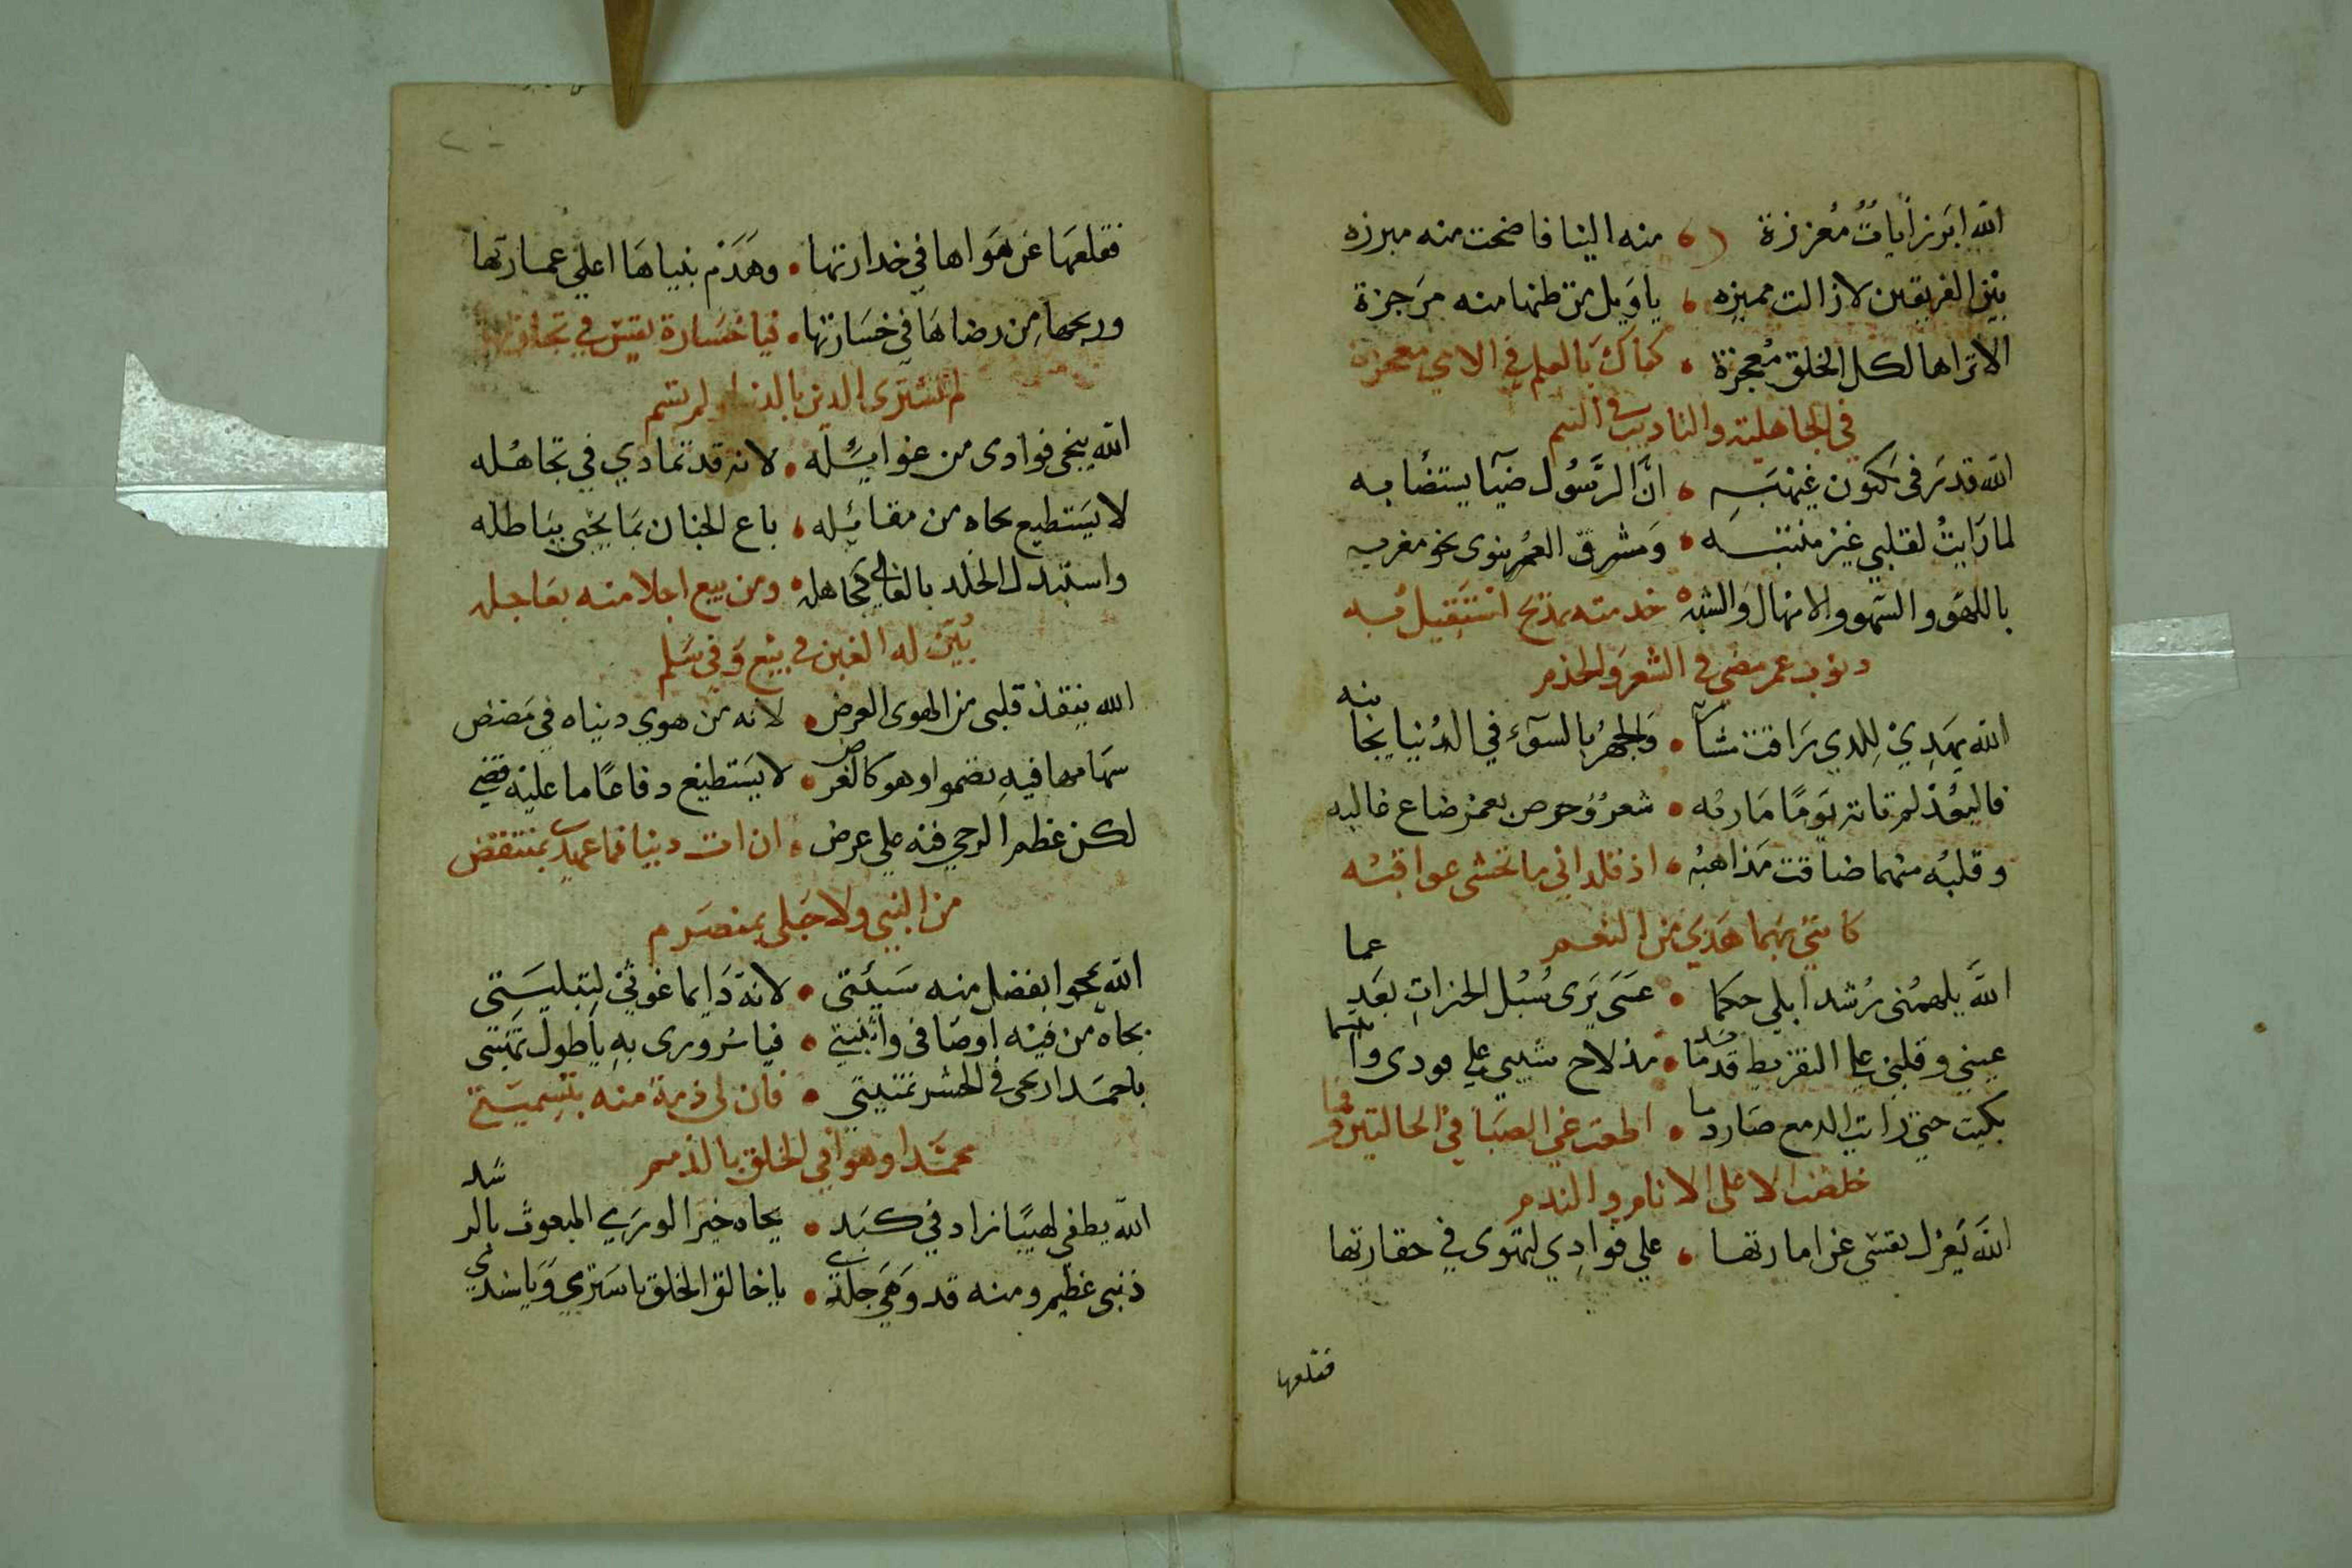 الله ابرز ايات معززة منه الينا فاضحت منه مبرزه
بين الفريقين لازالت مميزه ياويل من طنها منه مرجزة
الا تراها لكل الخلق معجزة كفاك بالعلم في الامي معجزة
في الجاهلية والتاديب في اليتم
الله قد سر في مكنون غيهبه ان الرسول ضيا يستضا به
لما رايت لقلبي غير منتبه ومشرق العمر ينوى نحو مغربه
باللهو والسهو والامهال والشبه خدمته بمديح استقيل به
ذنوب عمر مضى في الشعر والخدم
الله يهدي للدي راقت مشا والجهر بالسوء في الدنيا يجا نبه
فاليعذ لم تاته يوما ماربه شعر وحرص بعمر ضاع غالبه
وقلبه منهما ضاقت مذاهبه اذ قلداني ما تخشى عواقبه
كانني بهما هدي من النعم
الله يلهمنى رشدا بلي حكما عسى يرى سبل الخيرات بعد عما
عيني وقلبي على التفريط قد ما مذ لاح شيبي على فودى وا
بكيت حتى رايت الدمع صار دما اطعت غي الصبا في الحالتين وما
حلصت الا على الاثام والندم
الله يعزل نفسي عن امارتها على فوادي لتهوى في حقارتها
فقلعها
فقلعها عن هواها في خدارتها وهدم بنياها اعلى عمارتها
وربحها من رضاها في خسارتها فيا خسارة نفس في تجارتها
لم تشترى الدين بالدنيا ولم تسم
الله ينجى فوادى من غوايله لانه قد تمادي في تجاهله
لا يستطيع نجاه من مقايله باع الجنان بما يجنى بباطله
واستبدل الخلد بالفاني تجاهله ومن يبع اجلا منه بعاجله
يبين له الغبن في بيع وفي سلم
الله ينقذ قلبى من الهوى العرض لانه من هوي دنياه في مضض
سهامها فيه وهو كالغرض لا يستطيع دفاعا ما عليه قضي
لكن عظم الرجي فنه على عرض ان ات دنبا فما عهدي بمنتقض
من النبي ولا حبلى بمنصرم
الله يمحوا بفضل منه سيئتى لانه دايما غوثي لتبليستى
بجاه من فيه اوصافى واثنيتي فيا سرورى به يا طول تمنيتي
باحمد ارتجى في الحشر تمنيتي فان لى ذمة منه بتسميتي
محمدا وهو اوفي الخلق بالذمم
الله يطفي لهيبا زاد في كبد بجاه خير الورى المبعوث بالر شد
ذنبى عظيم ومنه قد وهي جلدي يا خالق الخلق يا سترى ويا سندي